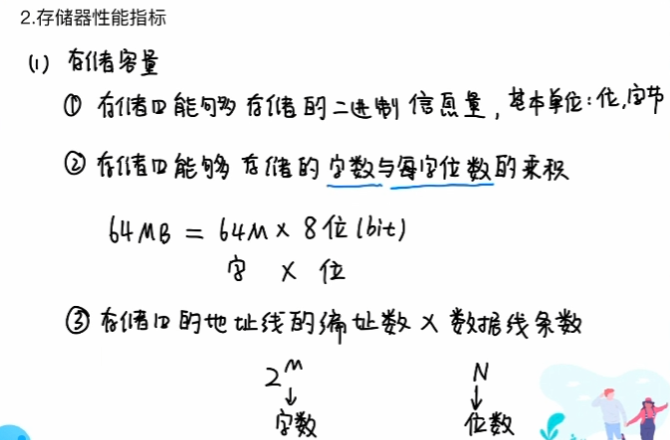 2.存储器性能指标
(1) 存储容量
① 存储口能够存储的二进制信息量，基本单位：位,字节
② 存储口能够存储的字数与每字位数的乘积
64MB = 64M × 8位(bit)
字 × 位
③ 存储口的地址线的编址数 × 数据线条数
2^M N
↓ ↓
字数 位数